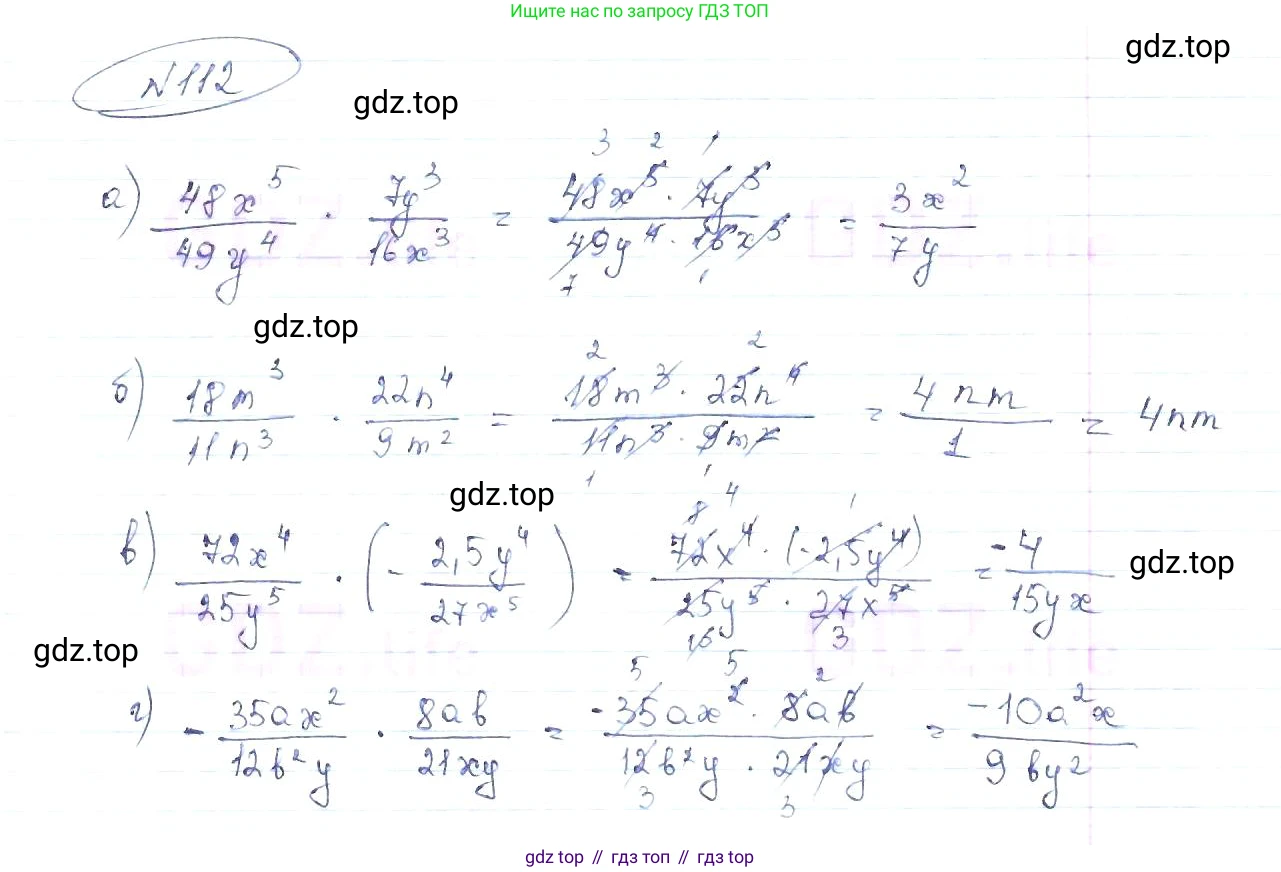 Ищите нас по запросу ГДЗ ТОП
gdz.top
№112
gdz.top
а) 48x^5/49y^4 · 7y^3/16x^3 = 48x^5 · 7y^3/49y^4 · 16x^3 = 3x^2/7y
gdz.top
б) 18m^3/11n^3 · 22n^4/9m^2 = 18m^3 · 22n^4/11n^3 · 9m^2 = 4nm/1 = 4nm
gdz.top
в) 72x^4/25y^5 · (- 2,5y^4/27x^5) = 72x^4 · (-2,5y^4)/25y^5 · 27x^5 = -4/15yx
gdz.top
gdz.top
г) - 35ax^2/12b^2y · 8ab/21xy = -35ax^2 · 8ab/12b^2y · 21xy = -10a^2x/9by^2
gdz top // гдз топ // гдз top